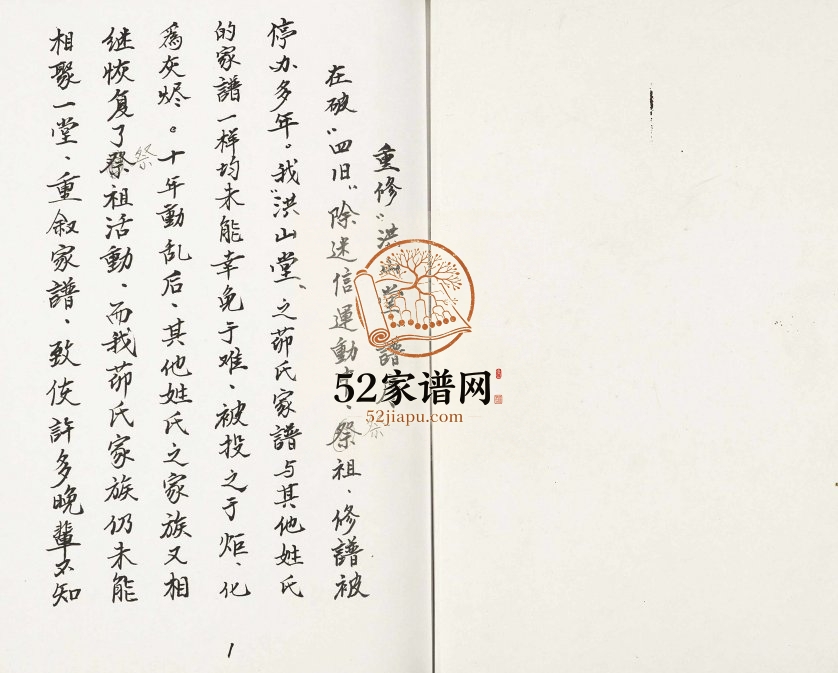 重修“洪山堂”譜序
在破“四旧”除迷信運動中、祭祖、修譜被
祭
停办多年。我“洪山堂”之茆氏家譜与其他姓氏
的家譜一样均未能幸免于难、被投之于炬、化
為灰烬。十年動乱后、其他姓氏之家族又相
祭
继恢复了祭祖活動、而我茆氏家族仍未能
相聚一堂、重叙家譜、致使許多晚輩不知
1
52家谱网
52jiapu.com